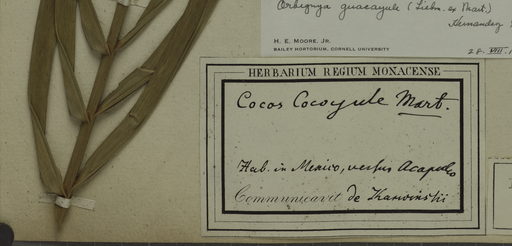 Orbignya guacuyule (Liebm. ex Mart.)
Hernandez
H. E. MOORE, JR.
BAILEY HORTORIUM, CORNELL UNIVERSITY
28. VIII.
HERBARIUM REGIUM MONACENSE
Cocos Cocoyule Mart.
Hab. in Mexico, versus Acapulco
Communicavit de Karwinski